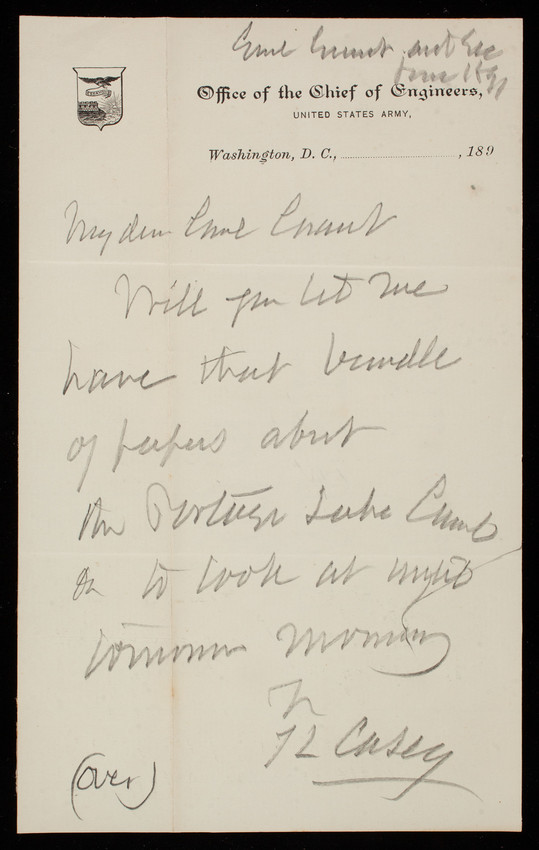 Office of the Chief of Engineers,
UNITED STATES ARMY,
Washington, D. C., , 189
My dear
Will you let me
have that bundle
of papers about
the Portage Lake
to look at
tomorrow morning
TL Casey
(over)